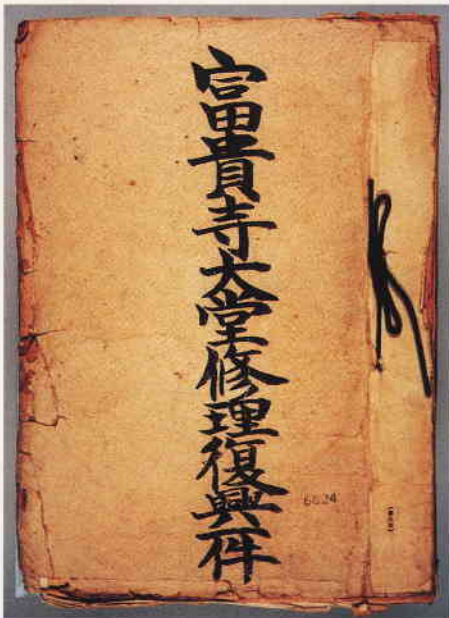 富貴寺大堂修理復興一件
6624